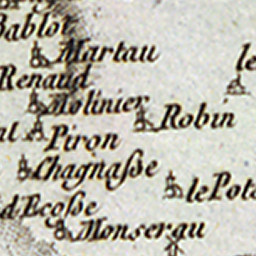 Bablot
Martau
le
Renaud
Molinier
Robin
Piron
Chagnaſse
le Pot
d'Ecoſse
Monserau